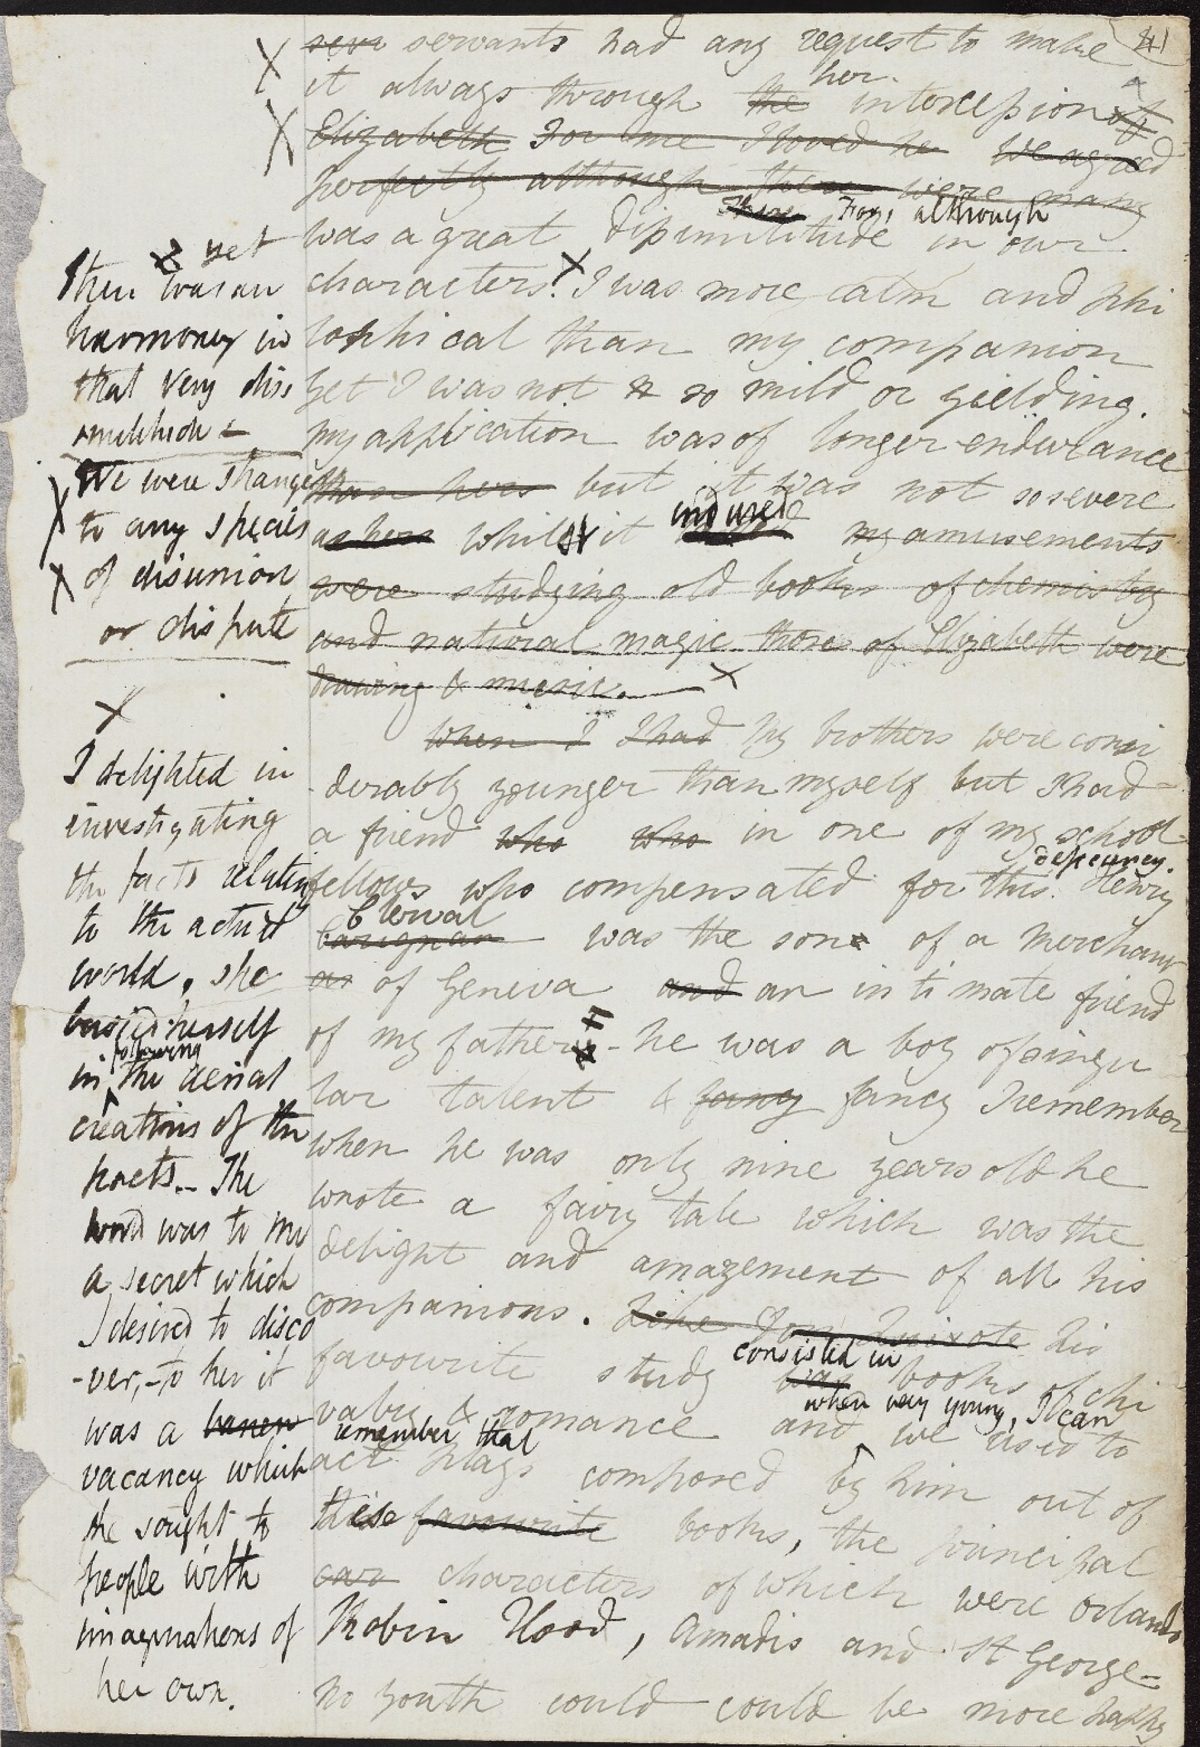 41
seve servants had any request to make
it always through the her intercession of
Elizabeth For me I loved he We agreed
perfectly although there were many
There For, although
was a great dissimilitude in our
characters. X I was more calm and phi
losphical than my companion
Yet I was not so mild or yielding.
my application was of longer endurance
than hers but it was not so severe
as hers whilst it endured my amusements
were studying old books of chemistry
and natural magic those of Elizabeth were
drawing & music. X
When I I had My brothers were consi
derably younger than myself but I had
a friend who who in one of my school
fellows who compensated for this deficiency. Henry
Carignan Clerval was the son of a merchant
as of Geneva and an intimate friend
of my father - he was a boy of singu
lar talent & fancy fancy I remember
when he was only nine years old he
wrote a fairy tale which was the
delight and amazement of all his
companions. Like Don Quixote his
favourite study was consisted in books of chi
valry & romance and when very young, I can
remember that we used to
act plays composed by him out of
these favourite books, the principal
car characters of which were Orlando
Robin Hood, Amadis and St George-
No youth could could be more happy
X
X
& yet
there was an
harmony in
that very diss
imilitude
We were strangers
X to any species
X of disunion
or dispute
X
I delighted in
investigating
the facts relating
to the actual
world, she
busied herself
in following the aerial
creations of the
poets - The
world was to me
a secret which
I desired to disco
-ver, - to her it
was a barren
vacancy which
she sought to
people with
imaginations of
her own.